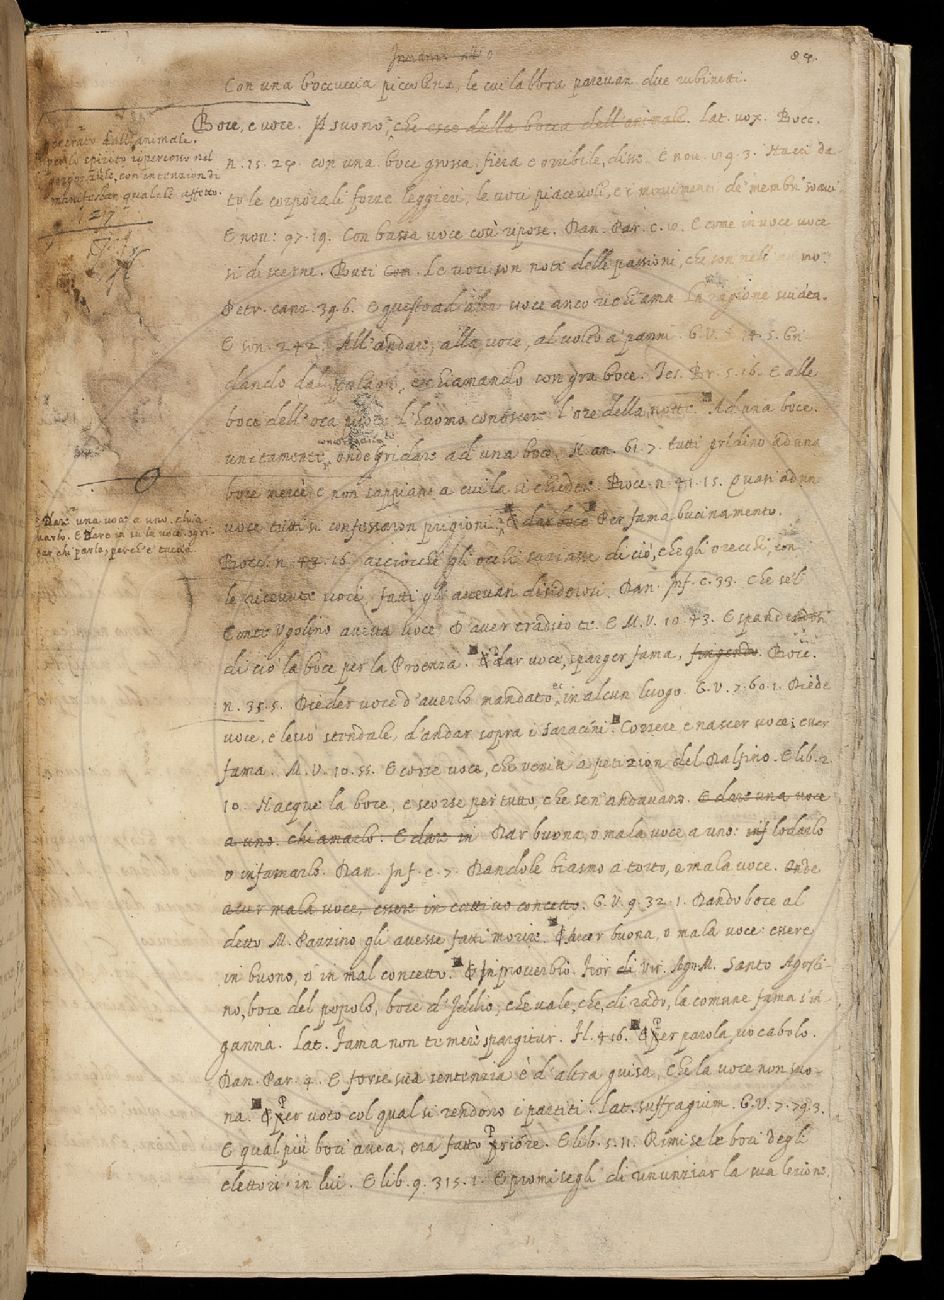 84.
Con una boccuccia piccolina, le cui labbra parevan due rubinetti.
Boce, e voce. Suono, che esce della bocca dell'animale. Lat. vox. Bocc.
generato dall'animale
con intenzion di
manifestar qualche affetto.
n. 15. 24. con una boce grossa, fiera e orribile, disse. E nou.
to le corporali forze leggieri, le voci piacevoli, e i movimenti de' membri
E nou: 97. 19. Con bassa voce così rispose. Dan. Par. c. E come in voce voce
si discerne. Buti Com. Le voci son note delle passioni, che son nell'
Petr. canz. 39. 6. E questo ad alta voce anco richiama La ragione sviata.
E son. 242. All'andar, alla voce, al volto, a' panni. G. V.
dando dal esclamando con gra boce. Tes. Br. 5. 16. E alle
boce dell'oca l'huomo conoscere l'ore della notte. Ad una boce.
unitamente, onde gridare ad una boce, M. an. 61. 7. tutti gridino ad una
boce mercè, e non sappiano a cui la si chiedere. Bocc. n. 41. 15. Quasi ad una
Dare una voce a uno. chia-
marlo. E Dare in su la voce. sgri-
dar chi parla, perch'e' taccia.
voce tutti si confessaron prigioni. E dar boce Per fama, bucinamento.
Bocc. n. 43. 16. acciocchè gli occhi di ciò, che gli orecchi, con
le ricevute voci fatti gli avevan disiderosi. Dan. Inf. c. 33. Che se'l
Conte Ugolino aveva voce D'aver tradito te. E M. V. 10. 43. E
di ciò la boce per la Proenza. E dar voce, sparger fama, fingendo. Bocc.
n. 35. 5. Dieder voce d'averlo mandato in alcun luogo. G. V. 7. 60. 1. Diede
voce, e levò stendale, d'andar sopra i Saracini. Correre e nascer voce: esser
fama. M. V. 10. 55. E corse voce, che venìa a petizion del Dalfino. E lib. 2
10. Nacque la boce, e scorse per tutto, che sen'andavano. E dare una voce
a uno. chiamarlo. E dare in Dar buona, o mala voce a uno: inf lodarlo
o infamarlo. Dan. Inf. c. 7. Dandole biasmo a torto, e mala voce. Onde
aver mala voce, essere in cattivo concetto. G. V. 9. 32. 1. Dando boce al
detto M. Pazzino gli avesse fatti morire. Aver buona, o mala voce: essere
in buono, o in mal concetto. In proverbio. Fior di Vir. Agn. M. Santo Agosti-
no, boce del popolo, boce d'Iddio; che vale, che, di rado, la comune fama s'in-
ganna. Lat. Fama non temerè spargitur. Fl. 416. Per parola, vocabolo.
Dan. Par. 4. E forse sua sentenzia è d'altra guisa, Che la voce non suo-
na. Per voto col qual si rendono i partiti. Lat. suffragium. G. V. 7. 79. 3.
E qual più boci avea, era fatto Priore. E lib. 5. 11. Rimise le boci degli
elettori in lui. E lib. 9. 315. 1. E promisegli di rinunziar la sua lezione,